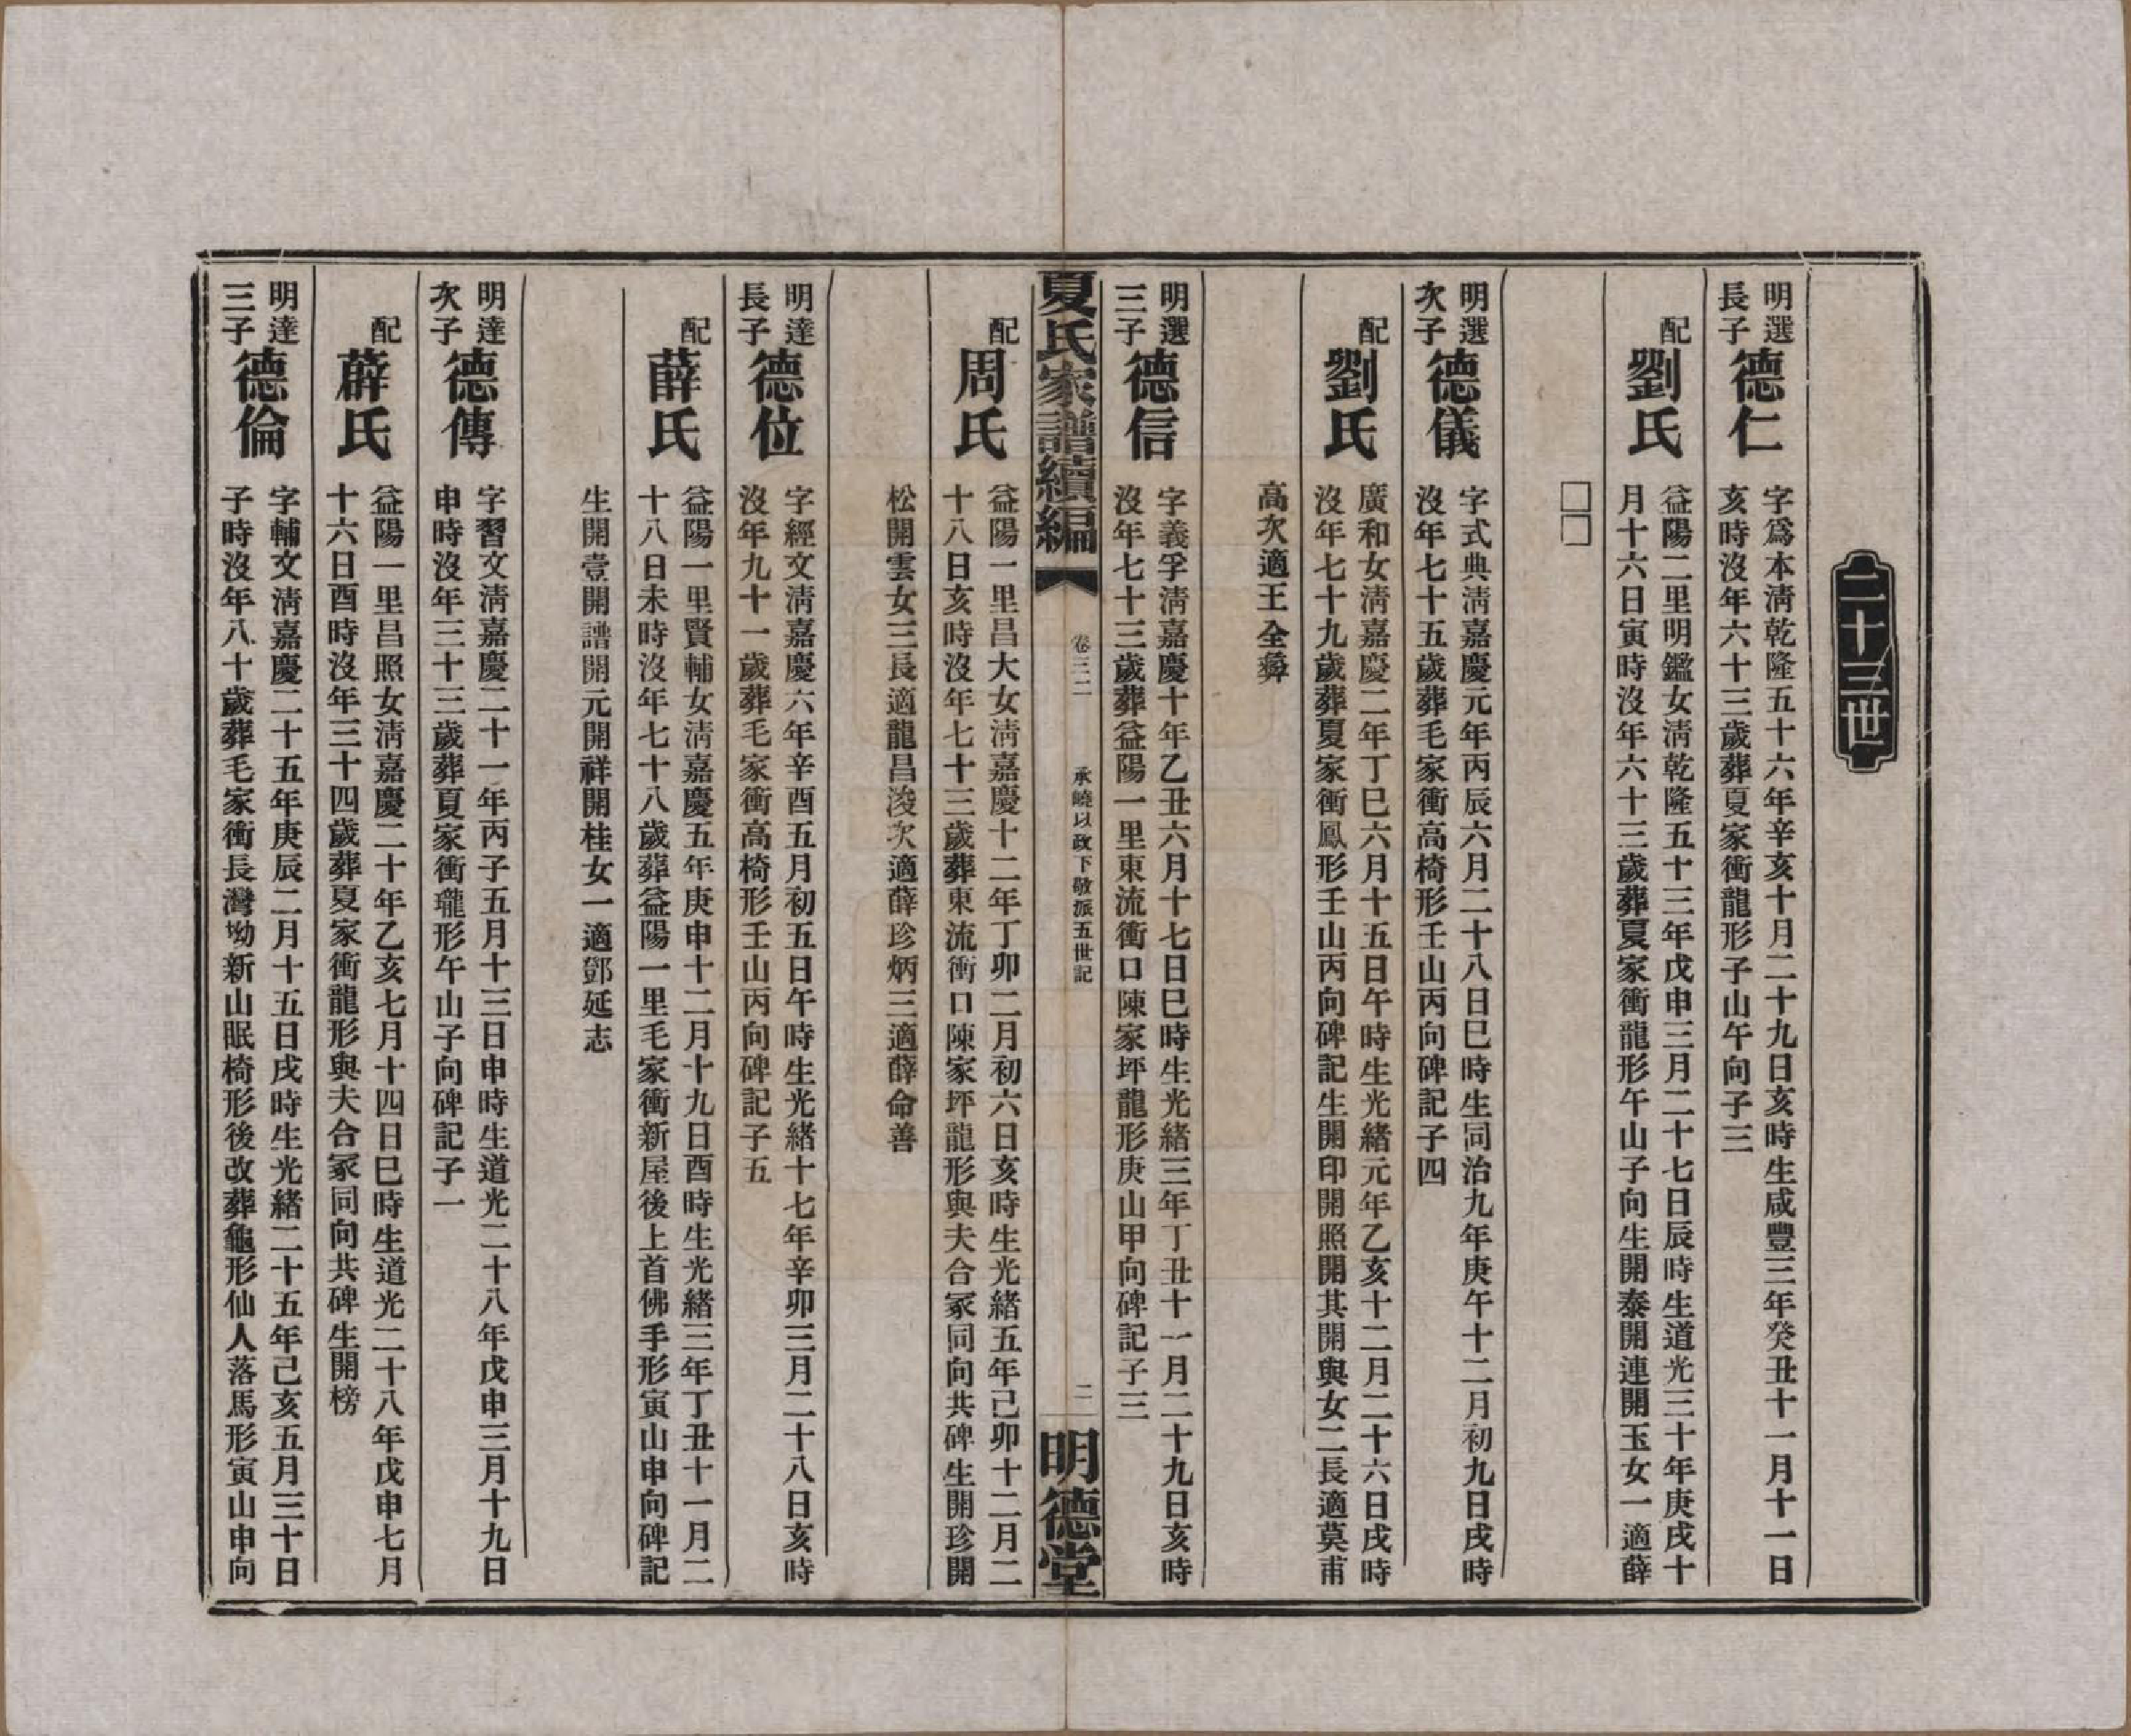 二十三世
明選
長子
德仁
字爲本淸乾隆五十六年辛亥十月二十九日亥時生咸豐三年癸丑十一月十一日
亥時沒年六十三歲葬夏家衝龍形子山午向子三
配
劉氏
益陽二里明鑑女淸乾隆五十三年戊申三月二十七日辰時生道光三十年庚戌十
月十六日寅時沒年六十三歲葬夏家衝龍形午山子向生開泰開連開玉女一適薛
□□
明選
次子
德儀
字式典淸嘉慶元年丙辰六月二十八日巳時生同治九年庚午十二月初九日戌時
沒年七十五歲葬毛家衝高椅形壬山丙向碑記子四
配
劉氏
廣和女淸嘉慶二年丁巳六月十五日午時生光緒元年乙亥十二月二十六日戌時
沒年七十九歲葬夏家衝鳳形壬山丙向碑記生開印開照開其開與女二長適莫甫
高次適王全彝
明選
三子
德信
字義孚淸嘉慶十年乙丑六月十七日巳時生光緒三年丁丑十一月二十九日亥時
沒年七十三歲葬益陽一里東流衝口陳家坪龍形庚山甲向碑記子三
夏氏家譜續編
卷三二
承曉以政下敬派五世記
二
明德堂
配
周氏
益陽一里昌大女淸嘉慶十二年丁卯二月初六日亥時生光緒五年己卯十二月二
十八日亥時沒年七十三歲葬東流衝口陳家坪龍形與夫合冢同向共碑生開珍開
松開雲女三長適龍昌浚次適薛珍炳三適薛命善
明達
長子
德位
字經文淸嘉慶六年辛酉五月初五日午時生光緒十七年辛卯三月二十八日亥時
沒年九十一歲葬毛家衝高椅形壬山丙向碑記子五
配
薛氏
益陽一里賢輔女淸嘉慶五年庚申十二月十九日酉時生光緒三年丁丑十一月二
十八日未時沒年七十八歲葬益陽一里毛家衝新屋後上首佛手形寅山申向碑記
生開壹開譜開元開祥開桂女一適鄧延志
明達
次子
德傳
字習文淸嘉慶二十一年丙子五月十三日申時生道光二十八年戊申三月十九日
申時沒年三十三歲葬夏家衝瓏形午山子向碑記子一
配
薜氏
益陽一里昌照女淸嘉慶二十年乙亥七月十四日巳時生道光二十八年戊申七月
十六日酉時沒年三十四歲葬夏家衝龍形與夫合冢同向共碑生開榜
明達
三子
德倫
字輔文淸嘉慶二十五年庚辰二月十五日戌時生光緒二十五年己亥五月三十日
子時沒年八十歲葬毛家衝長灣坳新山眠椅形後改葬龜形仙人落馬形寅山申向